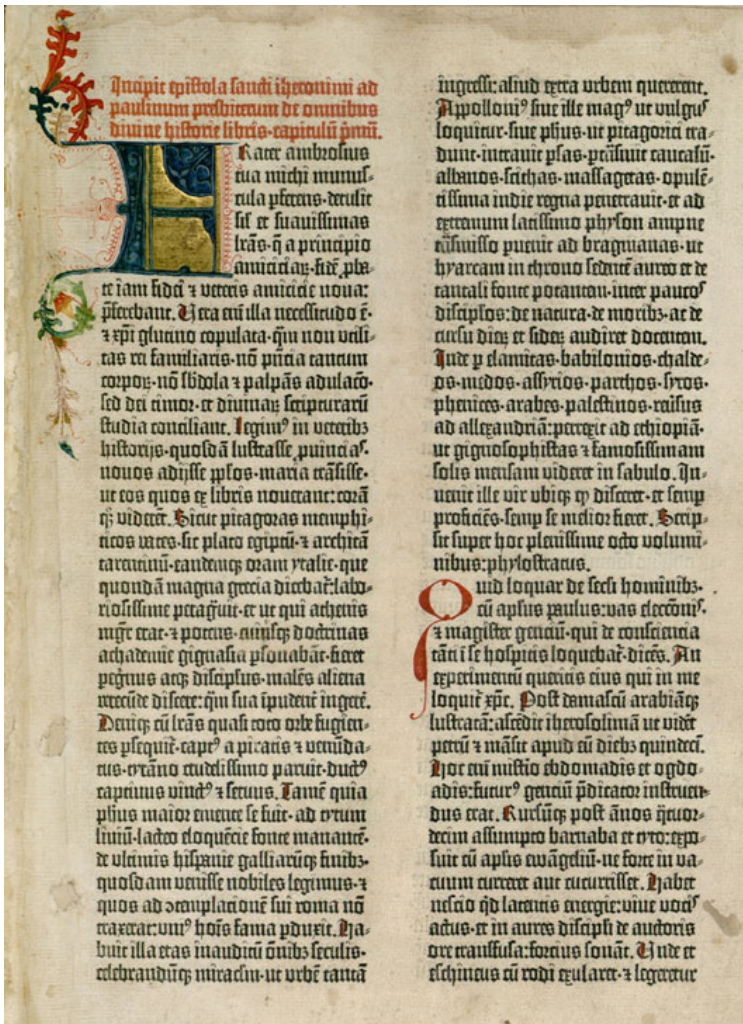 Incipit epistola sancti iheronimi ad
paulinum presbiterum de omnibus
divine historie libris·capitulũ pmũ.
Frater ambrosius
tua michi munus⸗
cula pferens·detulit
sil et suavissimas
lr̃as·q̃ a principio
amiciciaꝝ·fidẽ pba⸗
te iam fidei ⁊ veteris amicicie nova:
pferebant. Vera em̃ illa necessitudo ẽ·
⁊ xp̃i glutino copulata·qm̃ non utili⸗
tas rei familiaris·nõ pñcia tantum
corpoꝝ·nõ sb̃dola ⁊ palpãs adulacõ·
sed dei timor·et divinaꝝ scripturarũ
studia conciliant. Legimꝰ in veteribꝫ
historijs·quosdã lustrasse puinciaſ·
novos adijsse pplos·maria trãsisse·
ut eos quos ex libris noverant: corã
qꝫ viderẽt. Sicut pitagoras memphi⸗
ticos vates·sic plato egiptũ·⁊ architã
tarentinũ·eandemqꝫ oram ytalie·que
quondã magna grecia dicebat̃: labo⸗
riosissime peragͥvit·et ut qui athenis
mgr̃ erat·⁊ potens·cuiusqꝫ doctrinas
achademie gignasia psonabãt·fieret
pegͥnus atqꝫ discipulus·malẽs aliena
verecũde discere: qm̃ sua ĩpudent̃ ingerẽ.
Deniqꝫ cũ lr̃as quasi toto orbe fugien⸗
tes psequit̃·captꝰ a piratis ⁊ venũda⸗
tus·tyrãno crudelissimo paruit·ductꝰ
captivus vinctꝰ ⁊ servus. Tamẽ quia
ph̃us maior emente se fuit·ad tytum
livũ·lacteo eloquẽcie fonte manantẽ·
de ultimis hispanie galliarũqꝫ finibꝫ·
quosdam venisse nobiles legimus·⁊
quos ad ɔtemplacionẽ sui roma nõ
traxerat: uniꝰ hoĩs fama pduxit. Ha⸗
buit illa etas inauditũ õnibꝫ seculis·
celebrandũqꝫ miraclm̃·ut urbẽ tantã
ingressi: aliud extra urbem quererent.
Appolloniꝰ sive ille magꝰ ut vulgus
loquitur·sive ph̃us·ut pitagorici tra⸗
dunt·intravit psas·ptñsivit caucasũ·
albanos·scithas·massagetas·opulẽ⸗
tissima indie regna penetravit·et ad
extremum latissimo physon ampne
tñsmisso puenit ad bragmanas·ut
hyarcam in throno sedentẽ aureo et de
tantali fonte potantem·inter paucos
discip̃los: de natura·de moribꝫ ac de
cursu dieꝝ et sideꝝ audiret docentem.
Inde p elamitas·babilonios·chalde⸗
os·medos·assyrios·parthos·syros·
phenices·arabes·palestinos·revsus
ad allexandriã: perrexit ad ethiopiã·
ut gignosophistas ⁊ famosissimam
solis mensam videret in sabulo. In⸗
venit ille vir ubiqꝫ qp̃ disceret·et semp
proficiẽs·semp se melior fieret. Scrip⸗
sit super hoc plenissime octo volumi⸗
nibus: phylostratus.
Quid loquar de secli hominibꝫ·
cũ aplus paulus: vas elecc̃onis·
⁊ magister genciũ·qui de consciencia
tãti ĩ se hospitis loquebat̃·dicẽs. An
experimentũ queritis eius qui in me
loquit̃ xp̃c. Post damascũ arabiãqꝫ
lustratã: ascẽdit iherosolimã ut vidẽt
petrũ ⁊ mãsit apud eũ diebꝫ quindecĩ.
Hoc em̃ misterio ebdomadis et ogdo⸗
adis: futurꝰ genciũ p̃dicator instruen⸗
dus erat. Rursũqꝫ post ãnos q̃tuor⸗
decim assumpto barnaba et tyto: expo⸗
suit cũ aplis ewãgeliũ·ne forte in va⸗
cuum curreret aut cucurrisset. Habet
nescio qd̃ latentis energie: vive vocis
actus·et in aures discip̃li de auctoris
ore transfusa: forcius sonat̃. Unde et
eschineus cũ rodi exularet·⁊ legeretur